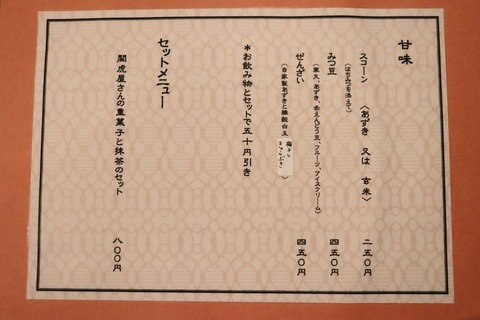 甘味
スコーン 〈あずき 又は 玄米〉 二五〇円
(はちみつを添えて)
みつ豆 四五〇円
(寒天、あずき、赤えんどう豆、フルーツ、アイスクリーム)
ぜんざい 四五〇円
(自家製あずきと雑穀白玉 )
*お飲み物とセットで五十円引き
セットメニュー
閻虎屋さんの重菓子と抹茶のセット 八〇〇円